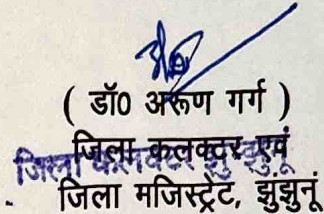 ( डॉ0 अरूण गर्ग )
जिला कलक्टर एवं
जिला कलक्टर झुंझुनू
जिला मजिस्ट्रेट, झुंझुनूं